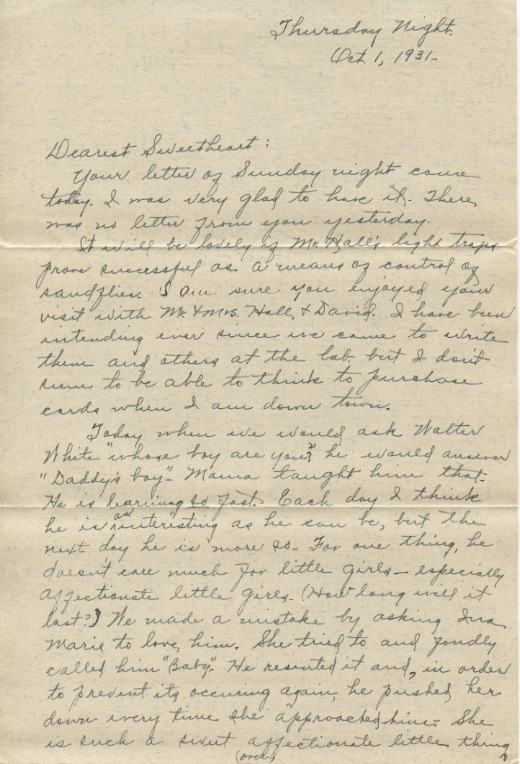 Thursday Night.
Oct. 1, 1931.
Dearest Sweetheart:
Your letter of Sunday night came
today. I was very glad to have it. There
was no letter from you yesterday.
It will be lovely if Mr. Hall's light traps
prove successful as a means of control of
sandflies. I am sure you enjoyed your
visit with Mr. & Mrs. Hall & David. I have been
intending ever since we came to write
them and others at the lab. but I don't
seem to be able to think to purchase
cards when I am down town.
Today when we would ask Walter
White "whose boy are you?" he would answer
"Daddy's boy". Mama taught him that.
He is learning so fast. Each day I think
he is as interesting as he can be, but the
next day he is more so. For one thing, he
doesn't care much for little girls — especially
affectionate little girls. (How long will it
last?) We made a mistake by asking Ina
Marie to love him. She tried to and fondly
called him "Baby". He resented it and, in order
to prevent its occuring again, he pushed her
down every time she approached him. She
is such a sweet affectionate little thing
(over)